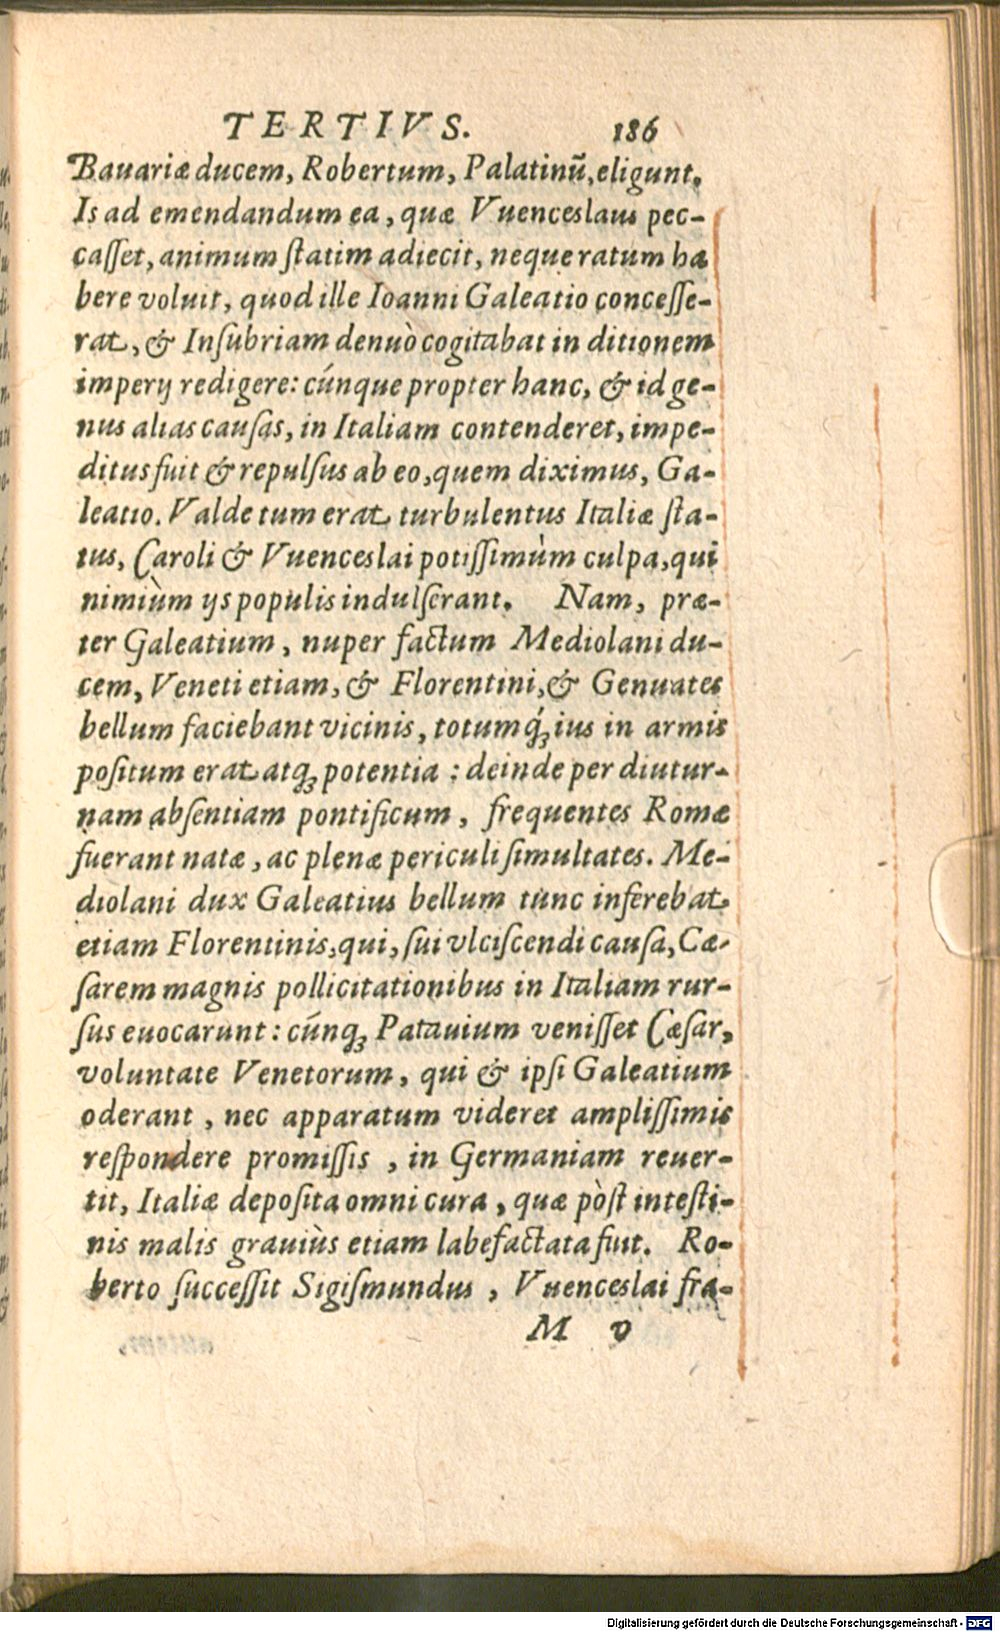 TERTIVS. 186
Bauariæ ducem, Robertum, Palatinũ, eligunt.
Is ad emendandum ea, quæ Vuenceslaus pec-
caſſet, animum ſtatim adiecit, neque ratum ha
bere voluit, quod ille Ioanni Galeatio conceſſe-
rat, & Inſubriam denuò cogitabat in ditionem
imperij redigere: cúnque propter hanc, & id ge-
nus alias cauſas, in Italiam contenderet, impe-
ditus fuit & repulſus ab eo, quem diximus, Ga-
leatio. Valde tum erat turbulentus Italiæ ſta-
tus, Caroli & Vuenceslai potiſſimùm culpa, qui
nimiùm ijs populis indulſerant. Nam, præ-
ter Galeatium, nuper factum Mediolani du-
cem, Veneti etiam, & Florentini, & Genuates
bellum faciebant vicinis, totumq́ꝫ ius in armis
poſitum erat atqꝫ potentia : deinde per diutur-
nam abſentiam pontificum, frequentes Romæ
fuerant natæ, ac plenæ periculi ſimultates. Me-
diolani dux Galeatius bellum tunc inferebat
etiam Florentinis, qui, ſui vlciſcendi cauſa, Cæ-
ſarem magnis pollicitationibus in Italiam rur-
ſus euocarunt: cúnqꝫ Patauium veniſſet Cæſar,
voluntate Venetorum, qui & ipſi Galeatium
oderant, nec apparatum videret ampliſſimis
reſpondere promiſſis, in Germaniam reuer-
tit, Italiæ depoſita omni cura, quæ pòſt inteſti-
nis malis grauiùs etiam labefactata fuit. Ro-
berto ſucceſſit Sigiſmundus, Vuenceslai fra-
M v
Digitalisierung gefördert durch die Deutsche Forschungsgemeinschaft - DFG